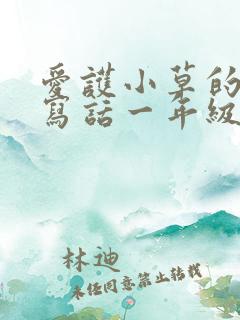 愛護小草的
寫話一年級
林迪
未任同意禁止轉載